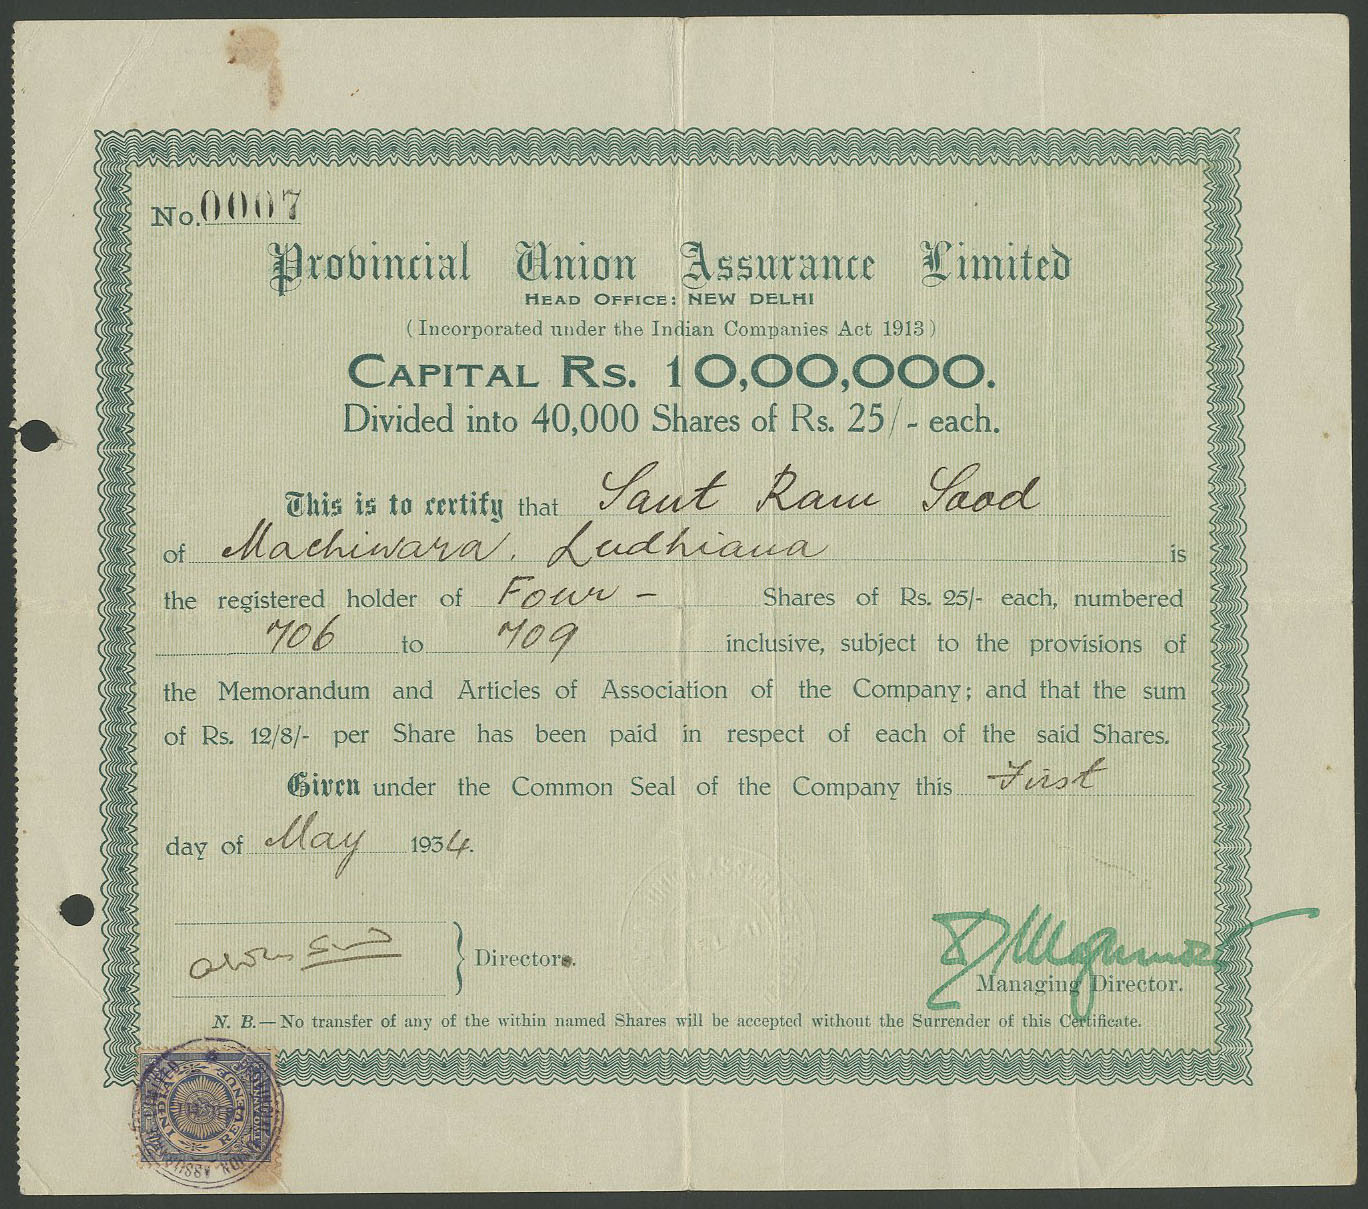 No. 0007
Provincial Union Assurance Limited
HEAD OFFICE: NEW DELHI
(Incorporated under the Indian Companies Act 1913)
CAPITAL RS. 10,00,000.
Divided into 40,000 Shares of Rs. 25/- each.
This is to certify that Sant Ram Sood
of Machiwara, Ludhiana is
the registered holder of Four - Shares of Rs. 25/- each, numbered
706 to 709 inclusive, subject to the provisions of
the Memorandum and Articles of Association of the Company; and that the sum
of Rs. 12/8/- per Share has been paid in respect of each of the said Shares.
Given under the Common Seal of the Company this First
day of May 1934.
Director.
Managing Director.
N. B.—No transfer of any of the within named Shares will be accepted without the Surrender of this Certificate.
INDIA REVENUE